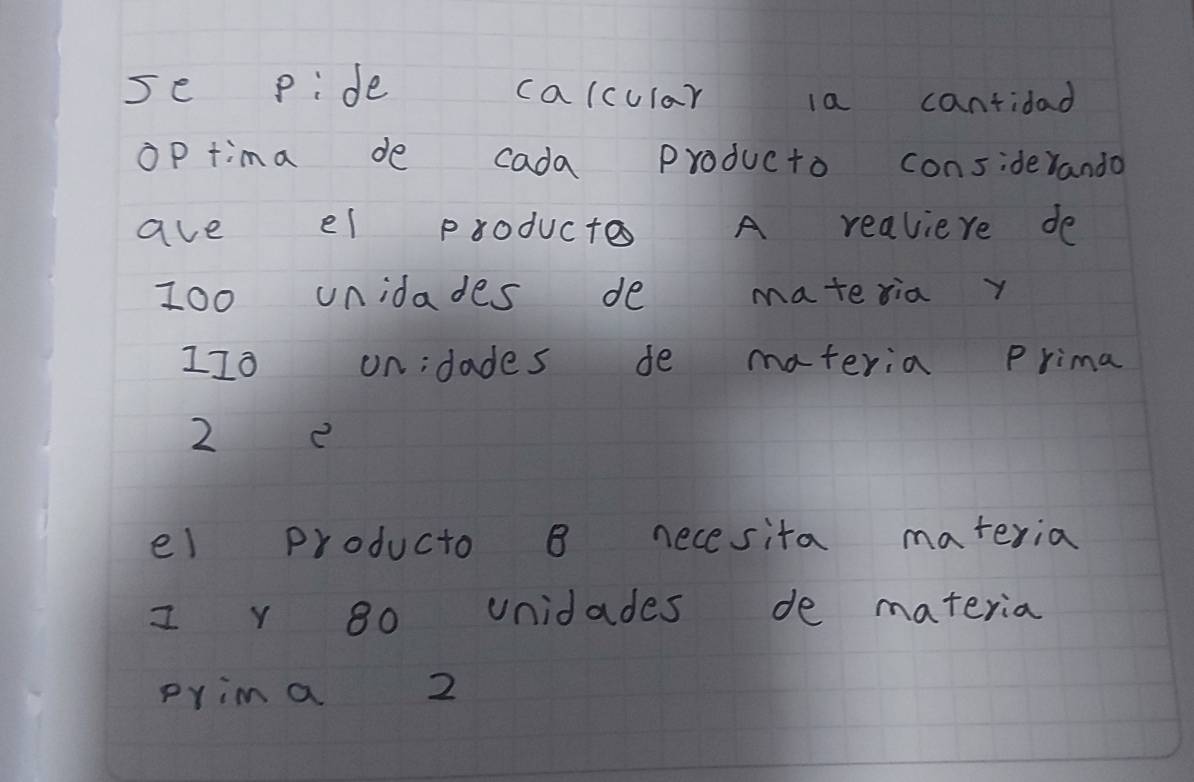 se pide calcular la cantidad
optima de cada producto considerando
que el producto A requiere de
100 unidades de materia y
110 unidades de materia prima
2 e
el producto B necesita materia
1 y 80 unidades de materia
prima 2